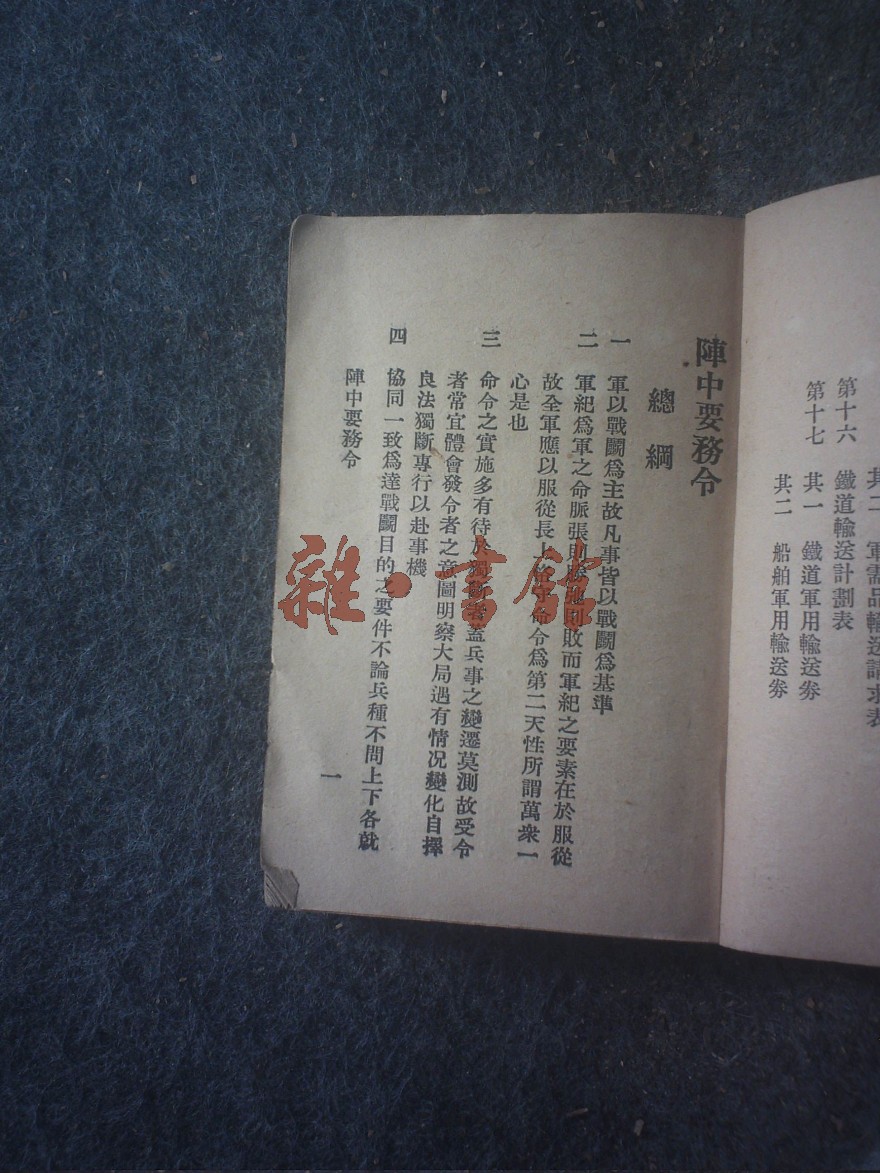 其二 軍需品輸送請求表
第十六 鐵道輸送計劃表
第十七 其一 鐵道軍用輸送劵
其二 船舶軍用輸送劵
陣中要務令
總綱
一 軍以戰鬭爲主故凡事皆以戰鬭爲基準
二 軍紀爲軍之命脈張則勝弛則敗而軍紀之要素在於服從
故全軍應以服從長上 守命令爲第二天性所謂萬衆一
心是也
三 命令之實施多有待於獨斷者蓋兵事之變遷莫測故受令
者常宜體會發令者之意圖明察大局遇有情况變化自擇
良法獨斷專行以赴事機
四 協同一致爲達戰鬭目的之要件不論兵種不問上下各就
陣中要務令
一
雜·書館